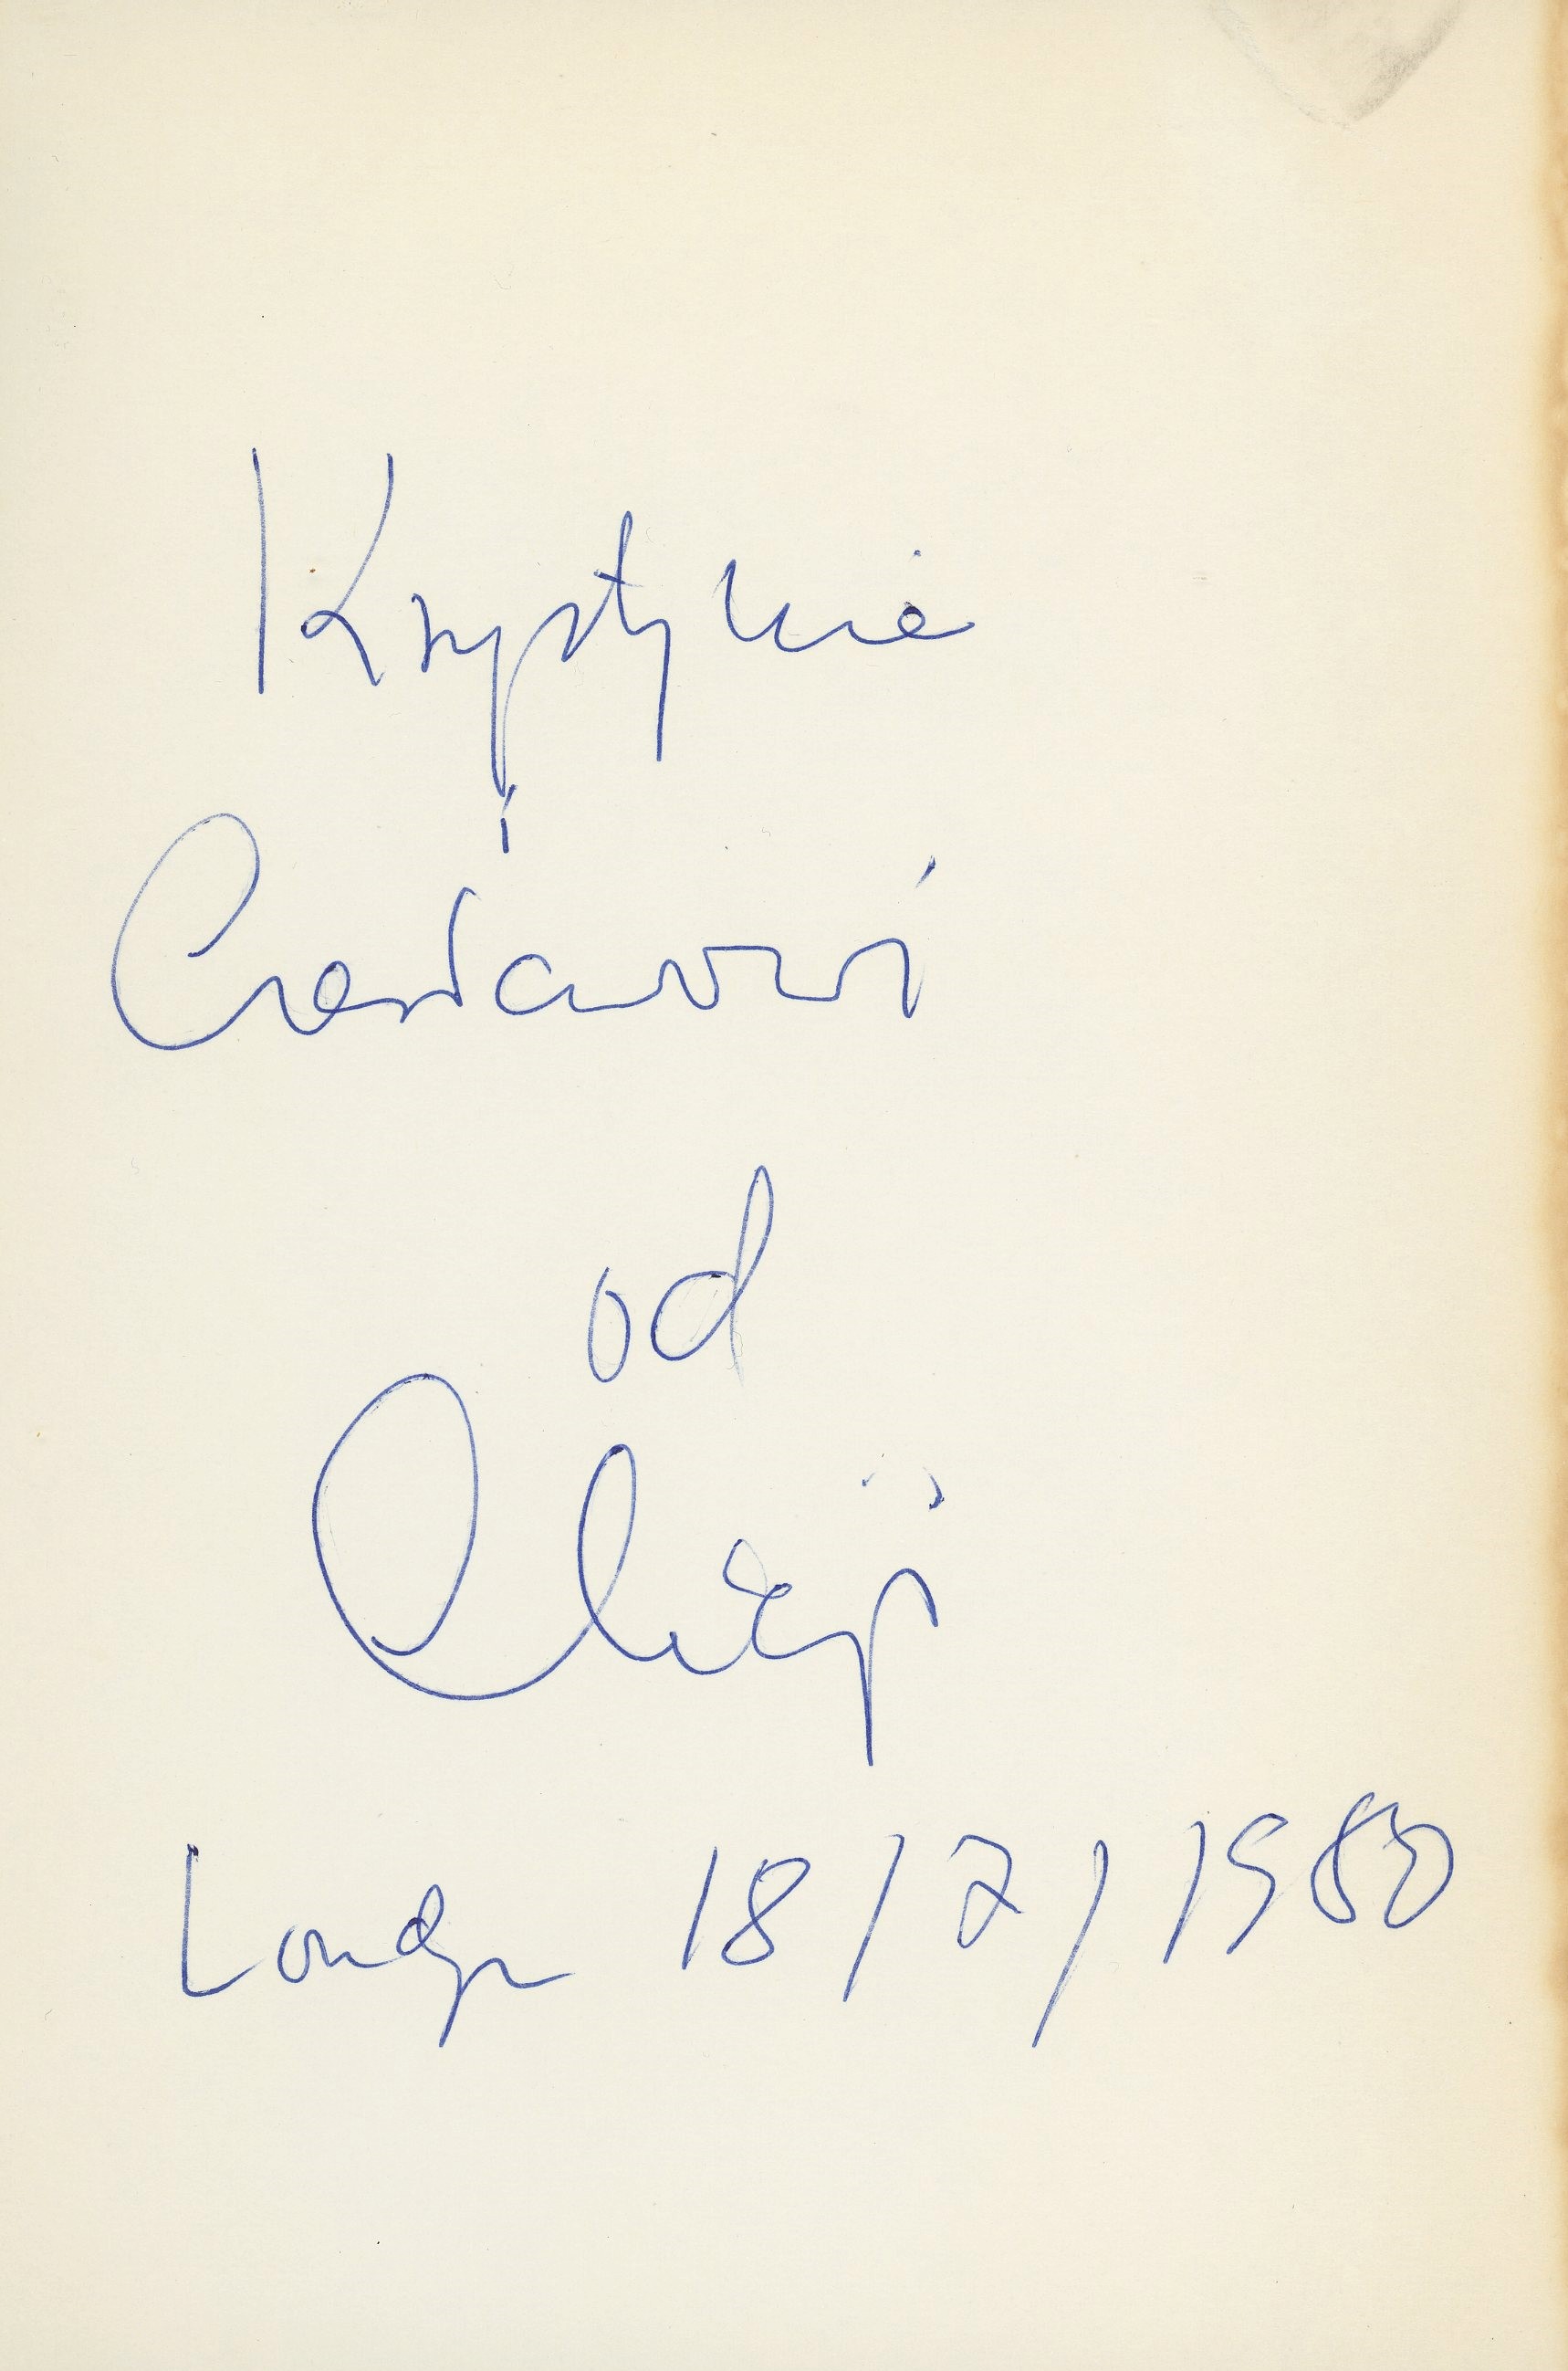 Krystynie
i
Czesławowi
od
Londyn 18/7/1980